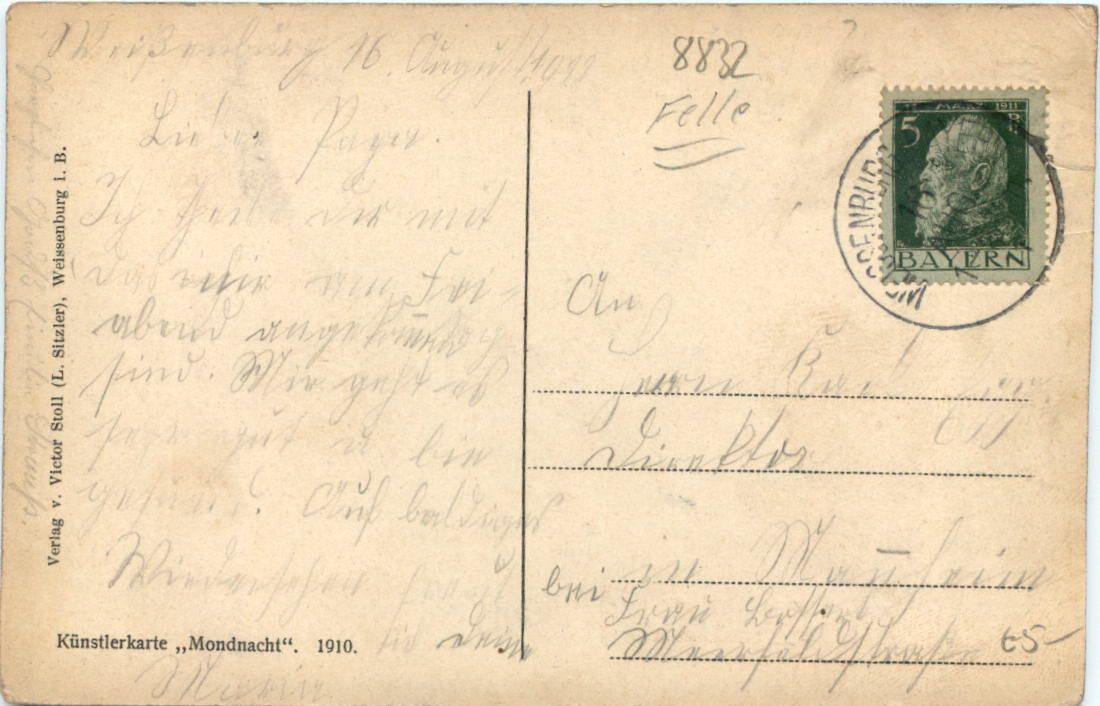 Weißenburg 16. August
Lieber Papa.
Ich Teile dir mit
das wir am Fei-
abend angekommen
sind. Mir geht es
sehr gut u. bin
gesund. Auf baldiges
Wiedersehen freut
sich deine
Maria
Verlag v. Victor Stoll (L. Sitzler), Weissenburg i. B.
Künstlerkarte „Mondnacht“. 1910.
8832
Felle
5 1911
BAYERN
WEISSENBURG
An
Herrn
Direktor
in Manheim
bei Frau
Meerfeldstraße 65